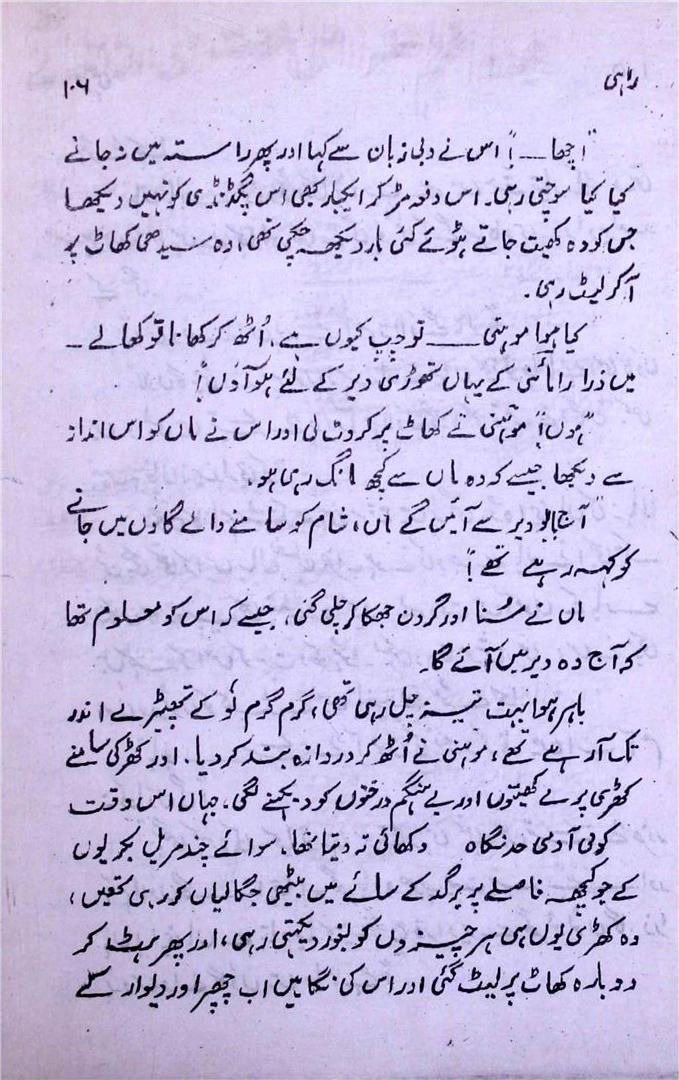 راہی
۱۰۶
"اچھا ـــ!" اس نے دبی زبان سے کہا اور پھر راستہ میں نہ جانے
کیا کیا سوچتی رہی۔ اس دفعہ مڑ کر ایکبار بھی اس پگڈنڈی کو نہیں دیکھا
جس کو وہ کھیت جاتے ہوئے کئی بار دیکھ چکی تھی، وہ سیدھی کھاٹ پر
آکر لیٹ رہی۔
کیا ہوا موہنی ــــــ تو چپ کیوں ہے، اُٹھ کر کھانا تو کھالے ـ
میں ذرا رامائنی کے یہاں تھوڑی دیر کے لئے ہو آؤں!
"ہوں!" موہنی نے کھاٹ پر کروٹ لی اور اس نے ماں کو اس انداز
سے دیکھا جیسے کہ وہ ماں سے کچھ مانگ رہی ہو۔
"آج بابو دیر سے آئیں گے ماں، شام کو سامنے والے گاؤں میں جانے
کو کہہ رہے تھے!
ماں نے سُنا اور گردن جھکا کر چلی گئی، جیسے کہ اس کو معلوم تھا
کہ آج وہ دیر میں آئے گا۔
باہر ہوا بہت تیز چل رہی تھی، گرم گرم لُو کے تھپیڑے اندر
تک آرہے تھے، موہنی نے اُٹھ کر دروازہ بند کر دیا۔ اور کھڑکی سامنے
کھڑی پرے کھیتوں اور بے ہنگم درختوں کو دیکھنے لگی۔ جہاں اس وقت
کوئی آدمی حد نگاہ دکھائی نہ دیتا تھا۔ سوائے چند مریل بکریوں
کے جو کچھ فاصلے پر برگد کے سائے میں بیٹھی جگالیاں کر رہی تھیں،
وہ کھڑی یوں ہی ہر چیزوں کو بغور دیکھتی رہی، اور پھر ہٹ کر
دوبارہ کھاٹ پر لیٹ گئی اور اس کی نگاہیں اب چھپر اور دیوار کے